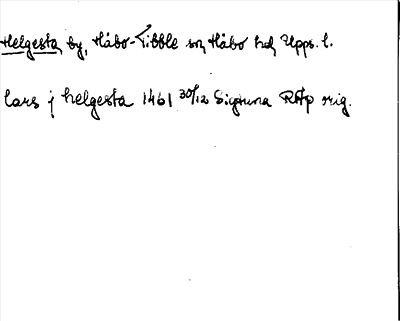 Helgesta, by, Håbo-Tibble sn Håbo hd Upps. l.
lars j helgesta 1461 30/12 Sigtuna RAp orig.